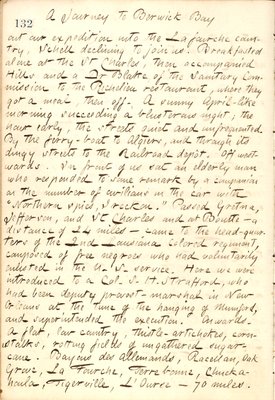 132
A Journey to Berwick Bay
out our expedition into the Lafourche coun-
try, Schell declining to join us. Breakfasted
alone at the St Charles, then accompanied
Hills and a Dr Blake of the Sanitary Com-
mission to the Rendice restaurant, where they
got a meal, then off. A sunny April-like
morning succeeding a blusterous night; the
hour early, the streets quiet and unfrequented.
By the ferry-boat to Algiers, and through its
dingy streets to the Railroad depôt. Off west-
ward. In front of us sat an elderly man
who responded to some remark by a companion
on the number of civilians in the car with
"Northern spies, I reckon." Passed Gretna,
Jefferson, and St Charles and at Boutte — a
distance of 24 miles — came to the head-quar-
ters of the 2nd Louisiana colored regiment,
composed of free negroes who had voluntarily
enlisted in the U.S. service. Here we were
introduced to a Col. S. H. Strafford, who
had been deputy provost-marshal in New
Orleans at the time of the hanging of Mumford,
and superintended the execution. Onwards.
A flat, low country, thistle-artichokes, corn-
stalks, rotting fields of ungathered sugar-
cane. Bayous des Allemands, Raceland, Oak
Grove, La Fourche, Terrebonne, Chucka-
houla, Tigerville, L'Ourse — 70 miles.